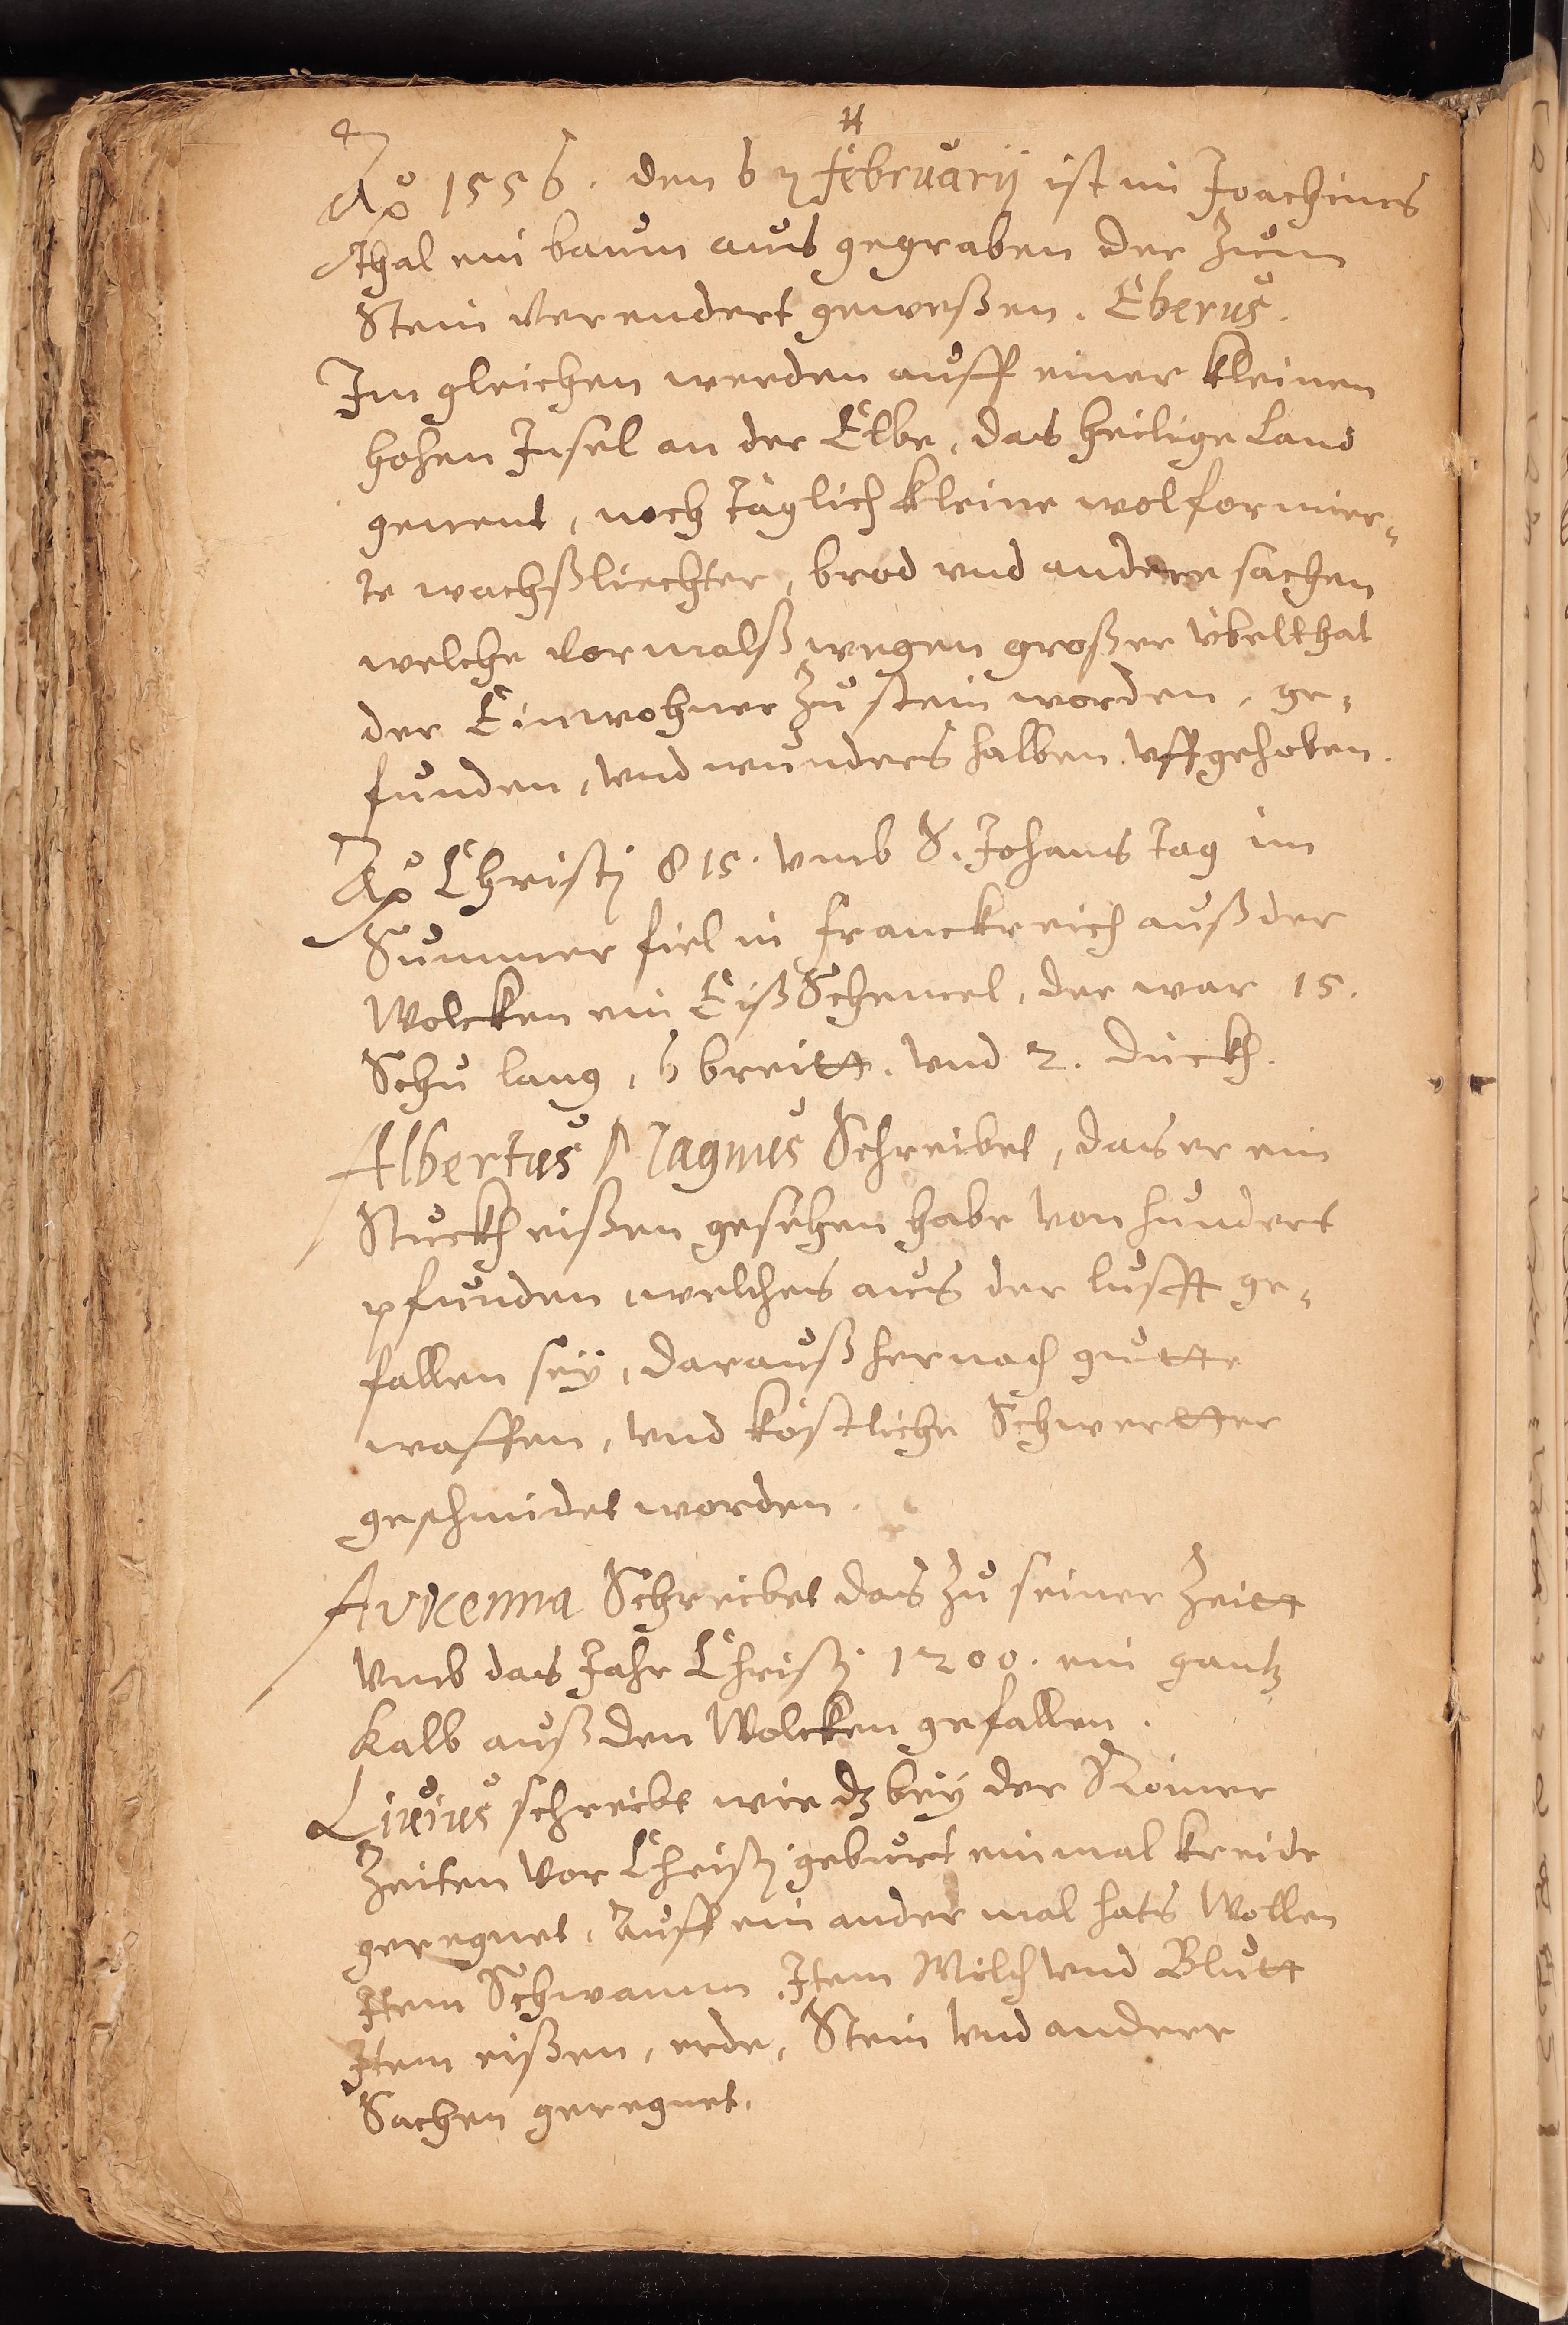 Aō 1556. den 6 februarij ist im Joachims
thal ein baum aus gegraben der zum
Stein verendert geweßen. Eberus.
Im gleichen werden auff einer kleinen
hohen Insel an der Elbe, das heilige Land
genent, noch täglich kleine wolformier-
te wachßliechter, brod vnd andere sachen
welche vormalß wegen großer übelthat
der Einwohner zu stein worden, ge-
funden, vnd wunders halben vffgehoben.
Aō Christj 815. vmb S. Johans tag im
Summer fiel in franckreich auß der
Wolcken ein Eiß Schemel, der war 15.
Schu lang, 6 breitt. vnd 2. dickh.
Albertus Magnus Schreibet, das er ein
Stuckh eißen gesehen habe von hundert
pfunden welches aus der lufft ge-
fallen seÿ, darauß hernach gutte
waffen, vnd köstliche Schwertter
geschmidet worden.
Avicenna Schreibet das zu seiner Zeitt
vmb das Jahr Christj 1200. ein gantz
Kalb auß den Wolcken gefallen.
Livius schreibt wie dz beÿ der Römer
Zeiten vor Christj geburt einmal kreide
geregnet, Auff ein ander mal hats Wollen
Item Schwamm, Item Milch vnd Blutt
Item eißen, erde, Stein vnd andere
Sachen geregnet.